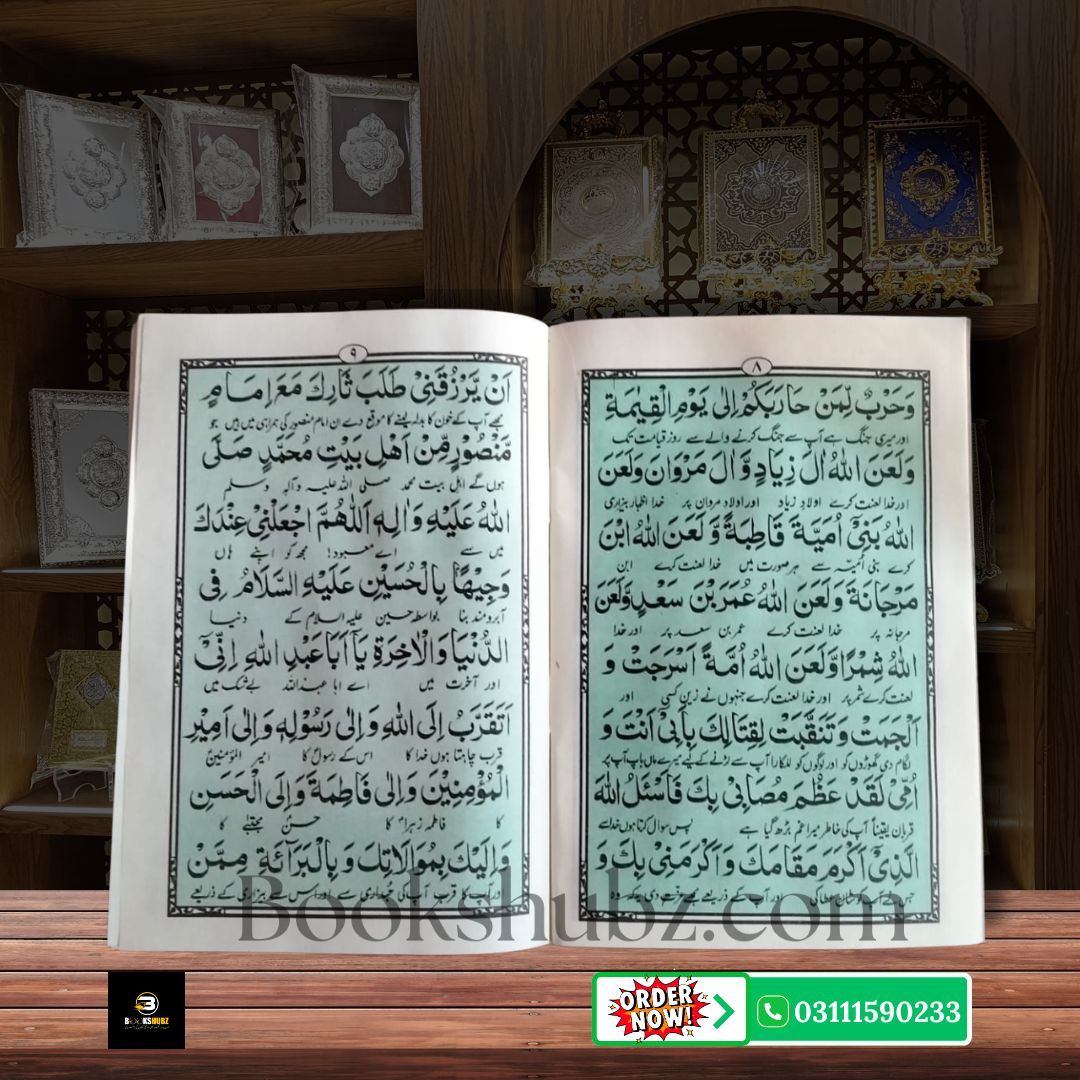 ۸
وَحَرْبٌ لِّمَنْ حَارَبَكُمْ اِلٰى يَوْمِ الْقِيٰمَةِ
اور میری جنگ ہے آپ سے جنگ کرنے والے سے روز قیامت تک
وَلَعَنَ اللّٰهُ اٰلَ زِيَادٍ وَّ اٰلَ مَرْوَانَ وَلَعَنَ
اور خدا لعنت کرے اولاد زیاد اور اولاد مروان پر خدا اظہار بیزاری
اللّٰهُ بَنِىْٓ اُمَيَّةَ قَاطِبَةً وَّ لَعَنَ اللّٰهُ ابْنَ
کرے بنی اُمیّہ سے ہر صورت میں خدا لعنت کرے ابن
مَرْجَانَةَ وَلَعَنَ اللّٰهُ عُمَرَ بْنَ سَعْدٍ وَّلَعَنَ
مرجانہ پر خدا لعنت کرے عمر بن سعد پر اور خدا
اللّٰهُ شِمْرًا وَّلَعَنَ اللّٰهُ اُمَّةً اَسْرَجَتْ وَ
لعنت کرے شمر پر اور خدا لعنت کرے جنہوں نے زین کسی اور
اَلْجَمَتْ وَتَنَقَّبَتْ لِقِتَالِكَ بِاَبِىْ اَنْتَ وَ
لگام دی گھوڑوں کو اور لوگوں کو للکارا آپ سے لڑنے کے لیے میرے ماں باپ آپ پر
اُمِّىْ لَقَدْ عَظُمَ مُصَابِىْ بِكَ فَاَسْئَلُ اللّٰهَ
قربان یقیناً آپ کی خاطر میرا غم بڑھ گیا ہے پس سوال کرتا ہوں خدا سے
الَّذِىْٓ اَكْرَمَ مَقَامَكَ وَ اَكْرَمَنِىْ بِكَ وَ
جس نے آپ کو شان عطا کی اور آپ کے ذریعے مجھے عزت دی
۹
اَنْ يَّرْزُقَنِىْ طَلَبَ ثَارِكَ مَعَ اِمَامٍ
مجھے آپ کے خون کا بدلہ لینے کا موقع دے ان امام منصور کی ہمراہی میں ہیں جو
مَّنْصُوْرٍ مِّنْ اَهْلِ بَيْتِ مُحَمَّدٍ صَلَّى
ہوں گے اہل بیت محمد صلی اللہ علیہ وآلہ وسلم
اللّٰهُ عَلَيْهِ وَاٰلِهٖ اَللّٰهُمَّ اجْعَلْنِىْ عِنْدَكَ
میں سے اے معبود! مجھ کو اپنے ہاں
وَجِيْهًا بِالْحُسَيْنِ عَلَيْهِ السَّلَامُ فِى
آبرو مند بنا بواسطہ حسین علیہ السلام کے دنیا
الدُّنْيَا وَالْاٰخِرَةِ يَآ اَبَا عَبْدِ اللّٰهِ اِنِّىْٓ
اور آخرت میں اے ابا عبداللہ بے شک میں
اَتَقَرَّبُ اِلَى اللّٰهِ وَ اِلٰى رَسُوْلِهٖ وَ اِلٰى اَمِيْرِ
قرب چاہتا ہوں خدا کا اس کے رسول کا امیر المؤمنین
الْمُؤْمِنِيْنَ وَ اِلٰى فَاطِمَةَ وَ اِلَى الْحَسَنِ
کا فاطمہ زہرا کا حسن مجتبےٰ کا
وَ اِلَيْكَ بِمُوَالَاتِكَ وَ بِالْبَرَآئَةِ مِمَّنْ
اور آپ کا قرب آپ کی حبداری سے اور اس سے بیزاری کے ذریعے
Bookshubz.com
BOOKSHUBZ
ORDER NOW!
03111590233